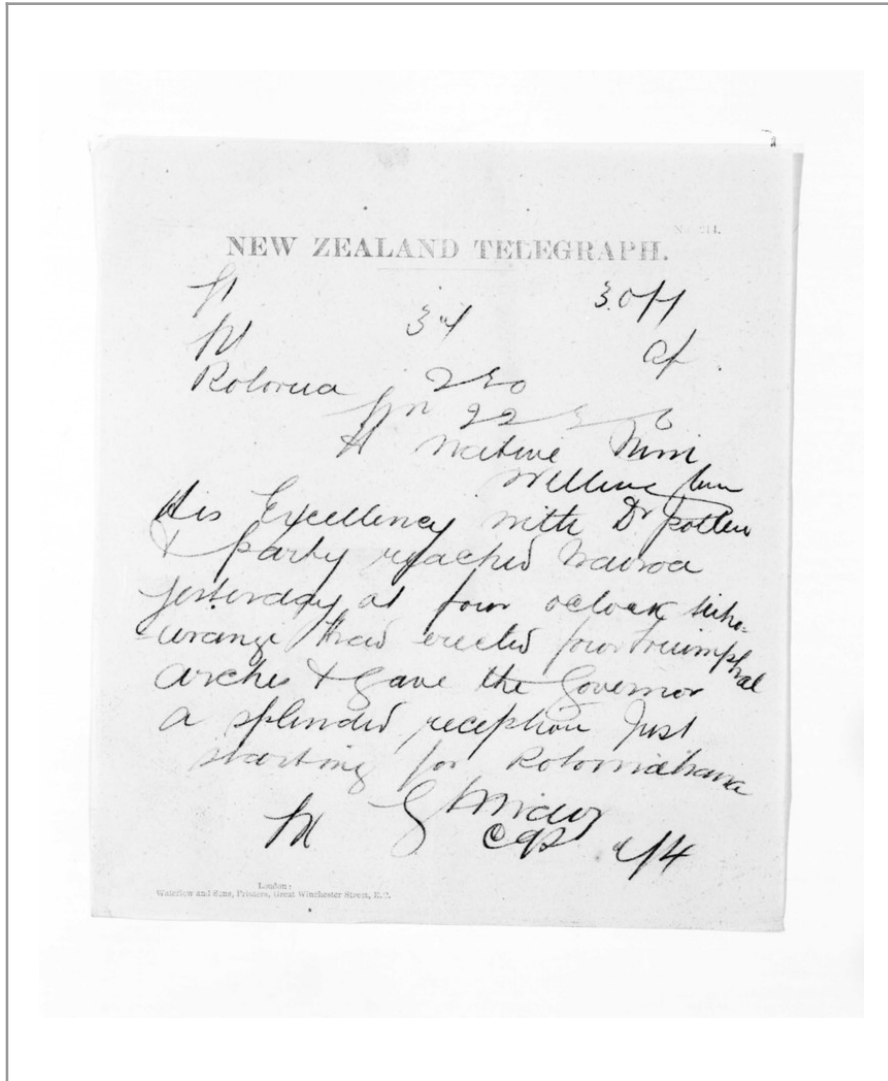 No. 211.
NEW ZEALAND TELEGRAPH.
Rotorua
H Native Min
Wellington
His Excellency with Dr Pollen
& party reached Wairoa
yesterday at four oclock
had erected four triumphal
arches & gave the Governor
a splendid reception Just
starting for Rotomahana
London:
Waterlow and Sons, Printers, Great Winchester Street, E.C.